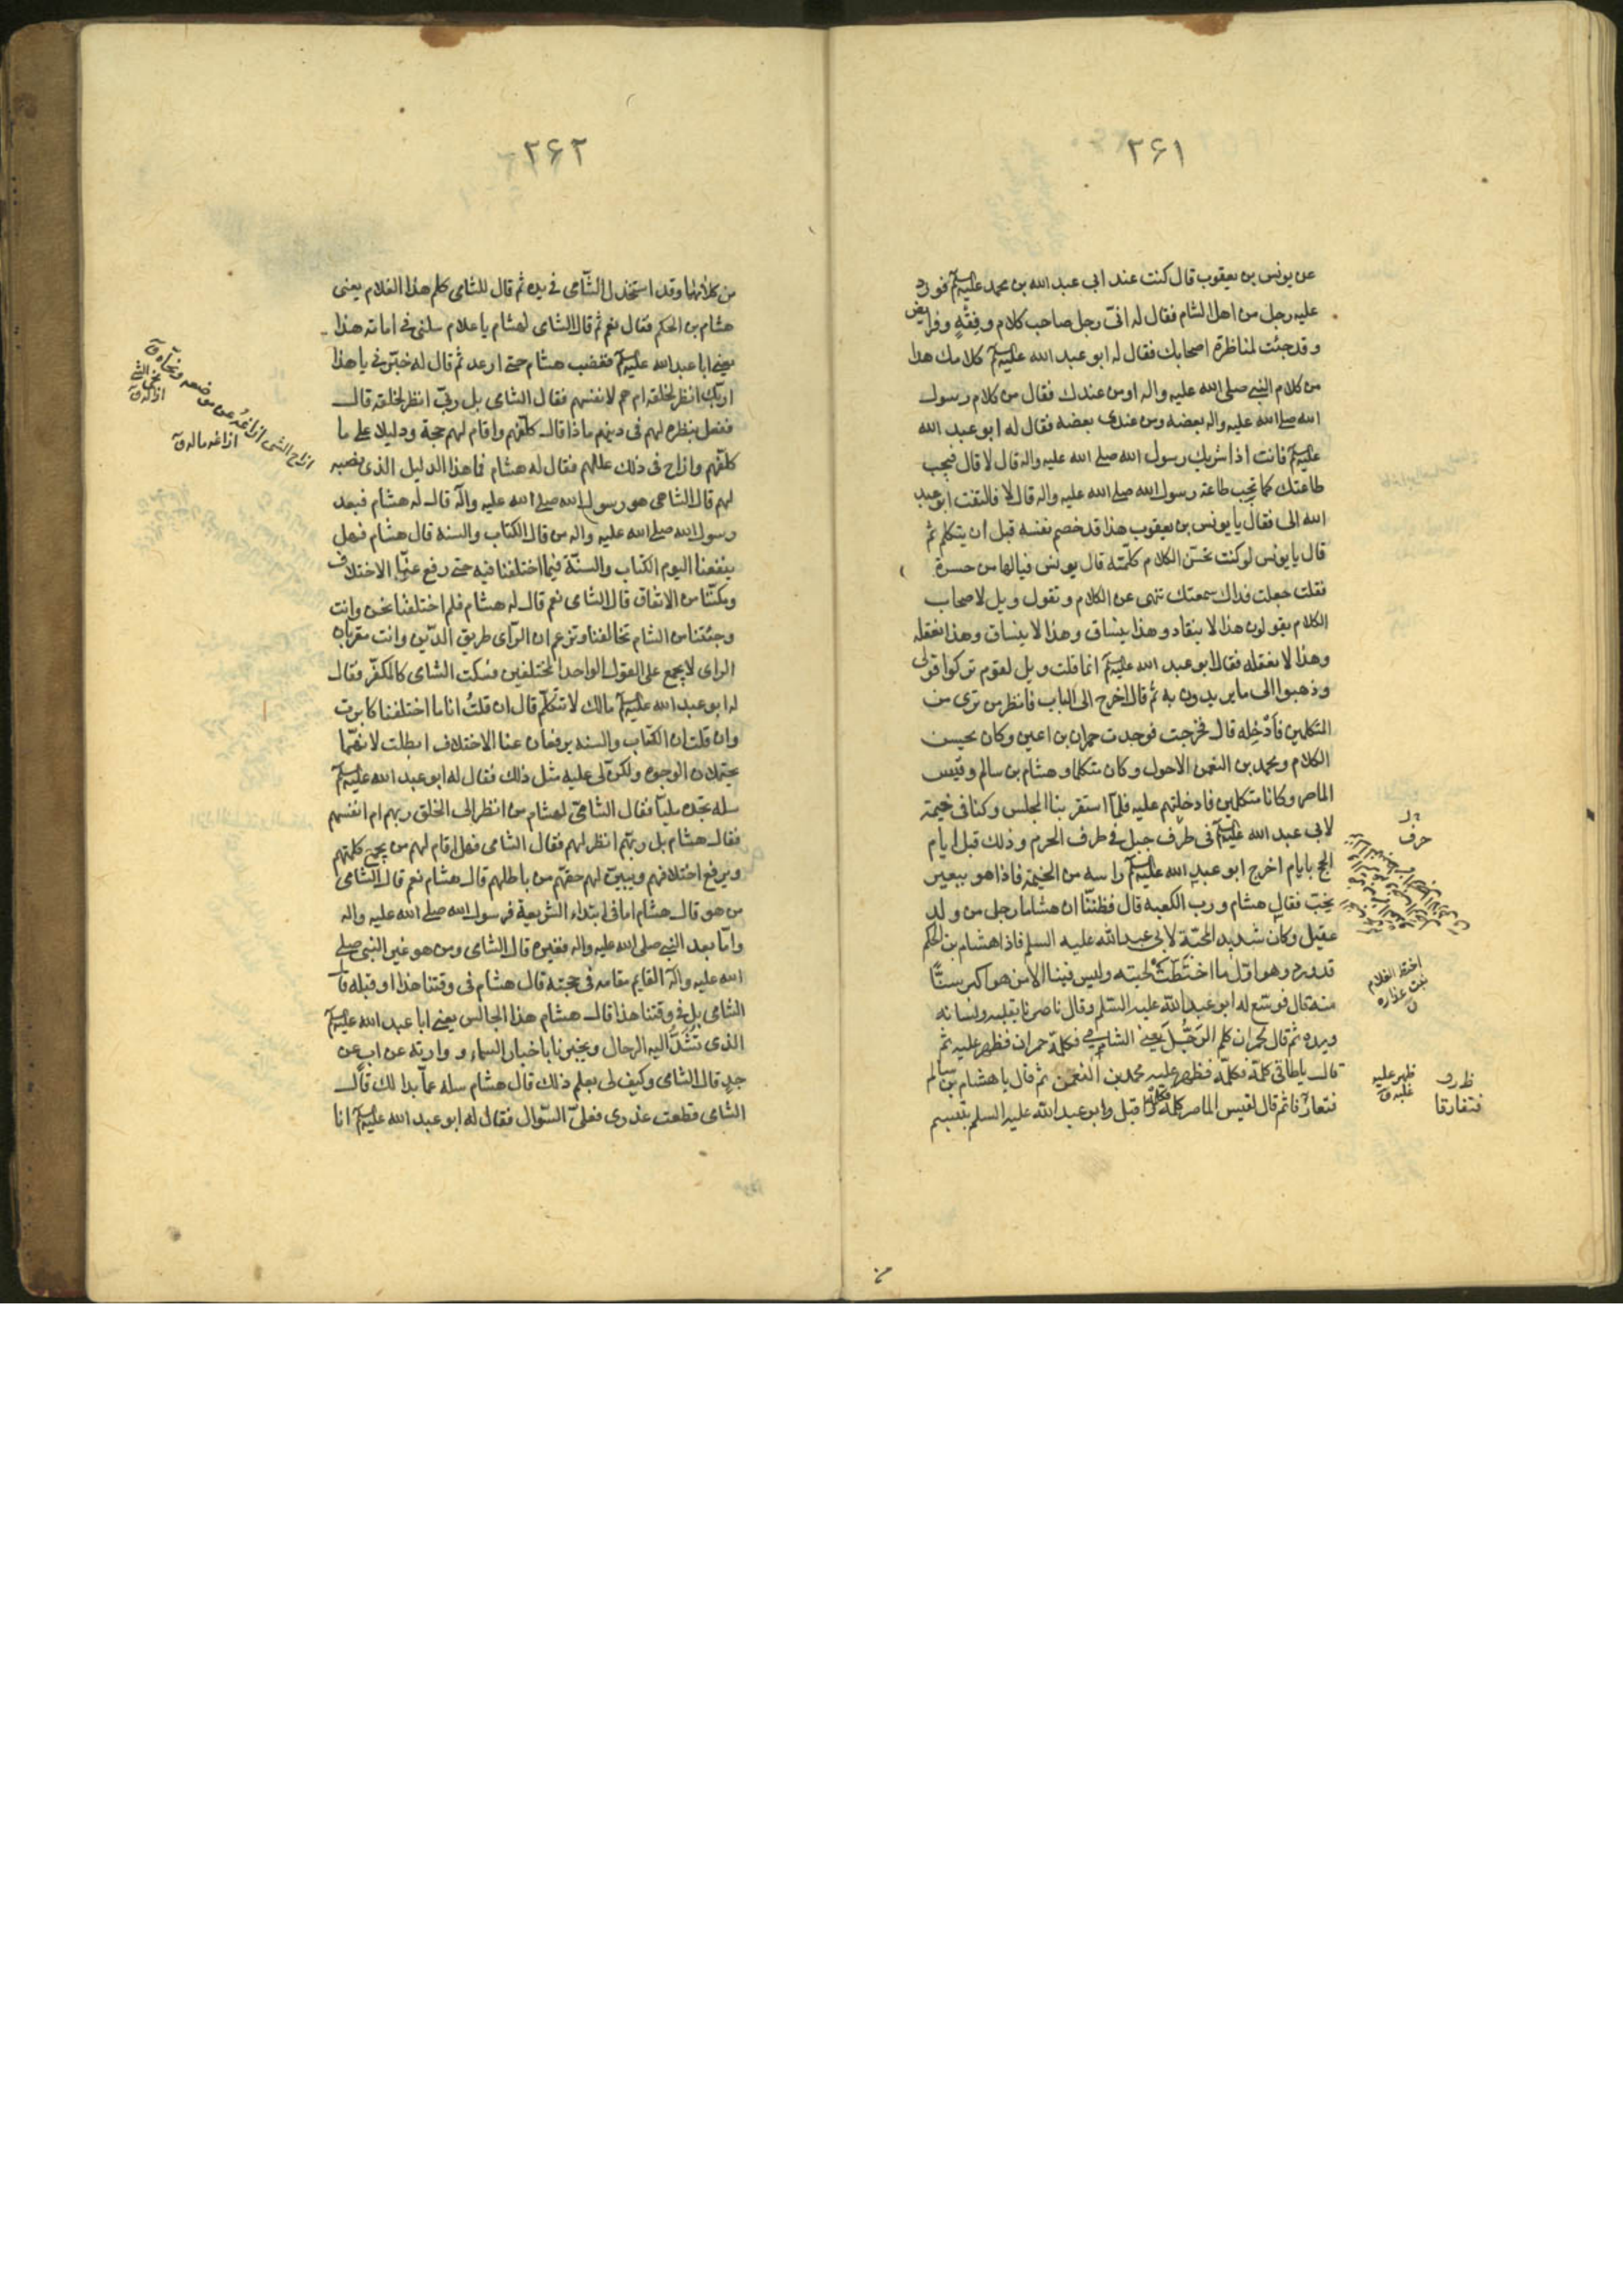 ٢۶١
عن يونس بن يعقوب قال كنت عند ابى عبد الله بن محمد عليه السلم فورد
عليه رجل من اهل الشام فقال له انى رجل صاحب كلام وفقه وفرايض
وقد جئت لمناظرة اصحابك فقال له ابو عبد الله عليه السلم كلامك هذا
من كلام النبى صلى الله عليه واله او من عندك فقال من كلام رسول
الله صلى الله عليه واله بعضه ومن عندى بعضه فقال له ابو عبد الله
عليه السلم فانت اذا شريك رسول الله صلى الله عليه واله قال لا قال فيجب
طاعتك كما تجب طاعة رسول الله صلى الله عليه واله قال لا فالتفت ابو عبد
الله الى فقال يا يونس بن يعقوب هذا قد خصم نفسه قبل ان يتكلم ثم
قال يا يونس لو كنت تحسن الكلام كلمته قال يونس فيالها من حسرة
فقلت جعلت فداك سمعتك تنهى عن الكلام وتقول ويل لاصحاب
الكلام يقولون هذا لا ينقاد وهذا ينساق وهذا لا ينساق وهذا نعقله
وهذا لا نعقله فقال ابو عبد الله عليه السلم انما قلت ويل لقوم تركوا قولى
وذهبوا الى ما يريدون به ثم قال اخرج الى الباب فانظر من ترى من
المتكلمين فادخله قال فخرجت فوجدت حمران بن اعين وكان يحسن
الكلام ومحمد بن النعمن الاحول وكان متكلما وهشام بن سالم وقيس
الماصر وكانا متكلمين فادخلتهم عليه فلما استقر بنا المجلس وكنا فى خيمة
لابى عبد الله عليه السلم فى طرف جبل فى طرف الحرم وذلك قبل ايام
الحج بايام اخرج ابو عبد الله عليه السلم راسه من الخيمة فاذا هو ببعير
يخب فقال هشام ورب الكعبه قال فظننا ان هشاما رجل من ولد
عقيل وكان شديد المحبة لابى عبد الله عليه السلم فاذا هشام بن الحكم
قد ورد وهو اول ما اختطت لحيته وليس فينا الا من هو اكبر سنا
منه قال فوسع له ابو عبد الله عليه السلم وقال ناصرنا بقلبه ولسانه
ويده ثم قال لحمران كلم الرجل يعنى الشامى فكلمه حمران فظهر عليه ثم
قال يا طاقى كلمه فكلمه فظهر عليه محمد بن النعمن ثم قال يا هشام بن سالم
فتعارفا ثم قال لقيس الماصر كلمه فكلمه واقبل ابو عبد الله عليه السلم يتبسم
حرف
اختط الغلام
نبت عذاره
ظهر عليه
غلبه ق
فتفارقا
٢۶٢
من كلامهما وقد استخذل الشامى فى يده ثم قال للشامى كلم هذا الغلام يعنى
هشام بن الحكم فقال نعم ثم قال الشامى لهشام يا غلام سلنى فى امامة هذا
يعنى ابا عبد الله عليه السلم فغضب هشام حتى ارعد ثم قال له خبرنى يا هذا
اربك انظر لخلقه ام هم لانفسهم فقال الشامى بل ربى انظر لخلقه قال
ففعل بنظره لهم فى دينهم ماذا قال كلفهم واقام لهم حجة ودليلا على ما
كلفهم وازاح فى ذلك عللهم فقال له هشام فما هذا الدليل الذى نصبه
لهم قال الشامى هو رسول الله صلى الله عليه واله قال له هشام فبعد
رسول الله صلى الله عليه واله من قال الكتاب والسنة قال هشام فهل
ينفعنا اليوم الكتاب والسنة فيما اختلفنا فيه حتى رفع عنا الاختلاف
ومكننا من الاتفاق قال الشامى نعم قال له هشام فلم اختلفنا نحن وانت
وجئتنا من الشام تخالفنا وتزعم ان الراى طريق الدين وانت مقر بان
الراى لا يجمع على القول الواحد المختلفين فسكت الشامى كالمفكر فقال
له ابو عبد الله عليه السلم مالك لا تتكلم قال ان قلت انا ما اختلفنا كابرت
وان قلت ان الكتاب والسنة يرفعان عنا الاختلاف ابطلت لانهما
يحتملان الوجوه ولكن لى عليه مثل ذلك فقال له ابو عبد الله عليه السلم
سله تجده مليا فقال الشامى لهشام من انظر الى الخلق ربهم ام انفسهم
فقال هشام بل ربهم انظر لهم فقال الشامى فهل اقام لهم من يجمع كلمتهم
ويرفع اختلافهم ويبين لهم حقهم من باطلهم قال هشام نعم قال الشامى
من هو قال هشام اما فى ابتداء الشريعة فرسول الله صلى الله عليه واله
واما بعد النبى صلى الله عليه واله فغيره قال الشامى ومن هو غير النبى صلى
الله عليه واله القايم مقامه فى حجته قال هشام فى وقتنا هذا او قبله قال
الشامى بل فى وقتنا هذا قال هشام هذا الجالس يعنى ابا عبد الله عليه السلم
الذى تشد اليه الرحال ويخبرنا باخبار السماء وراثة عن اب عن
جد قال الشامى وكيف لى بعلم ذلك قال هشام سله عما بدا لك قال
الشامى قطعت عذرى فعلى السوال فقال له ابو عبد الله عليه السلم انا